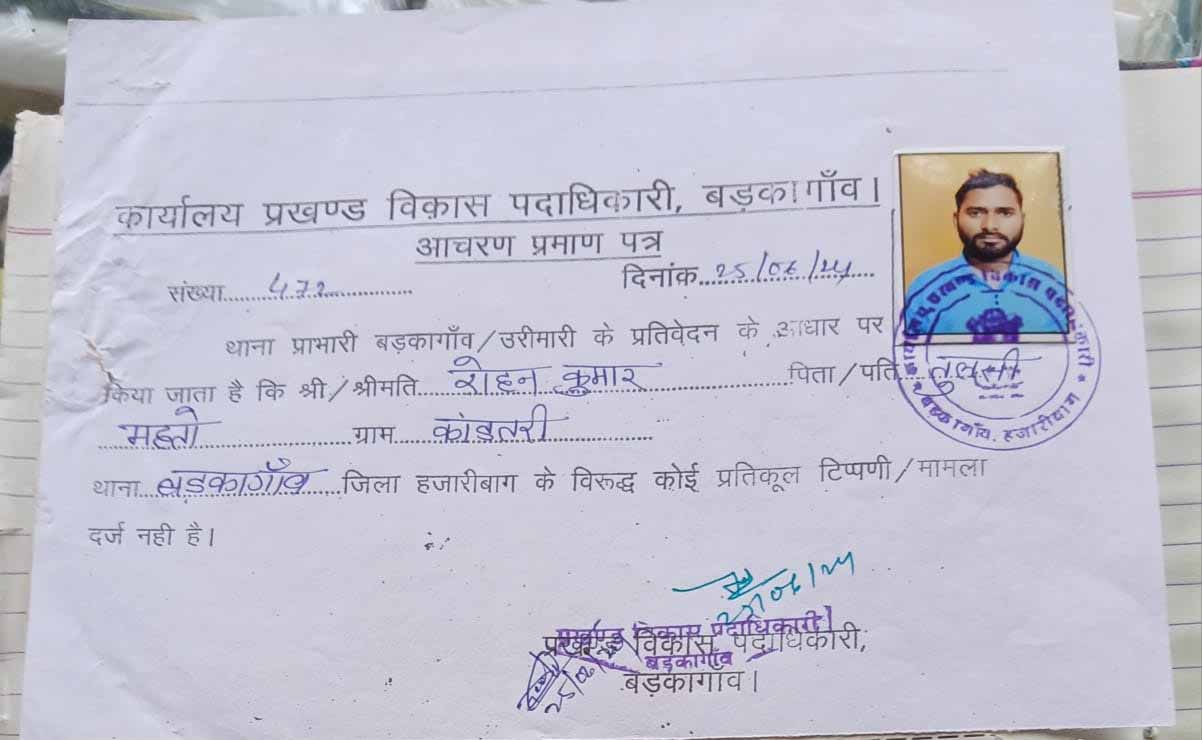 कार्यालय प्रखण्ड विकास पदाधिकारी, बड़कागाँव।
आचरण प्रमाण पत्र
संख्या........472.................. दिनांक..25/06/24....
थाना प्राभारी बड़कागाँव/उरीमारी के प्रतिवेदन के आधार पर
किया जाता है कि श्री/श्रीमति....रोहन कुमार....................पिता/पति..तुलसी
..महतो......................ग्राम....कांडतरी..............
थाना..बड़कागाँव..जिला हजारीबाग के विरूद्ध कोई प्रतिकूल टिप्पणी/मामला
दर्ज नही है।
कार्यालय, प्रखण्ड विकास पदाधिकारी
* बड़कागाँव, हजारीबाग *
25/06/24
प्रखण्ड विकास पदाधिकारी
बड़कागाँव
प्रखण्ड विकास पदाधिकारी,
25/06
बड़कागाँव।